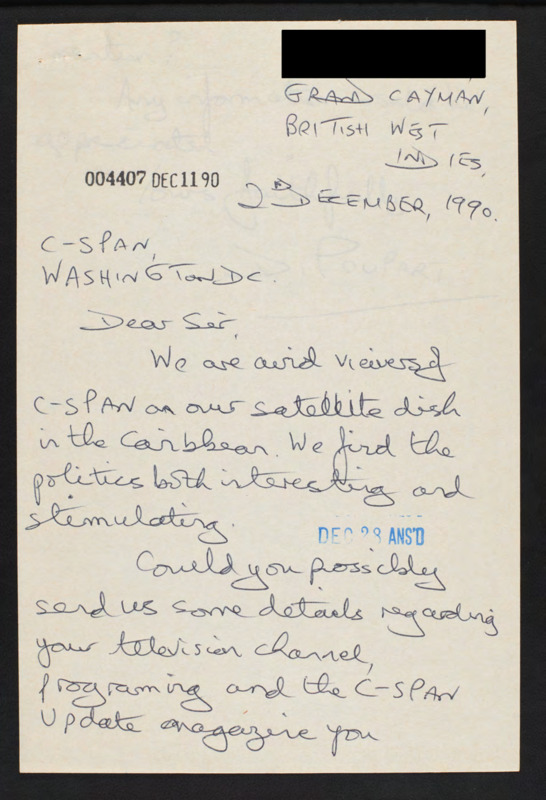 GRAND CAYMAN,
BRITISH WEST
INDIES,
004407 DEC 11 90
2ND DECEMBER, 1990.
C-SPAN,
WASHINGTON DC.
Dear Sir,
We are avid viewers of
C-SPAN on our satellite dish
in the Caribbean. We find the
politics both interesting and
stimulating.
DEC 28 ANS'D
Could you possibly
send us some details regarding
your television channel,
programing and the C-SPAN
Update magazine you